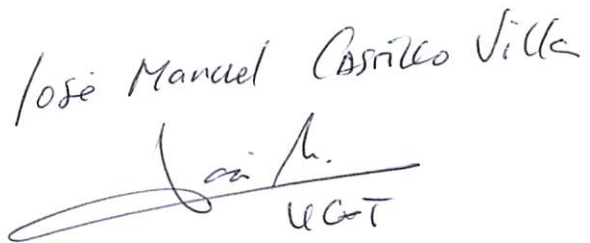 José Manuel Castillo Villa
José M.
UGT